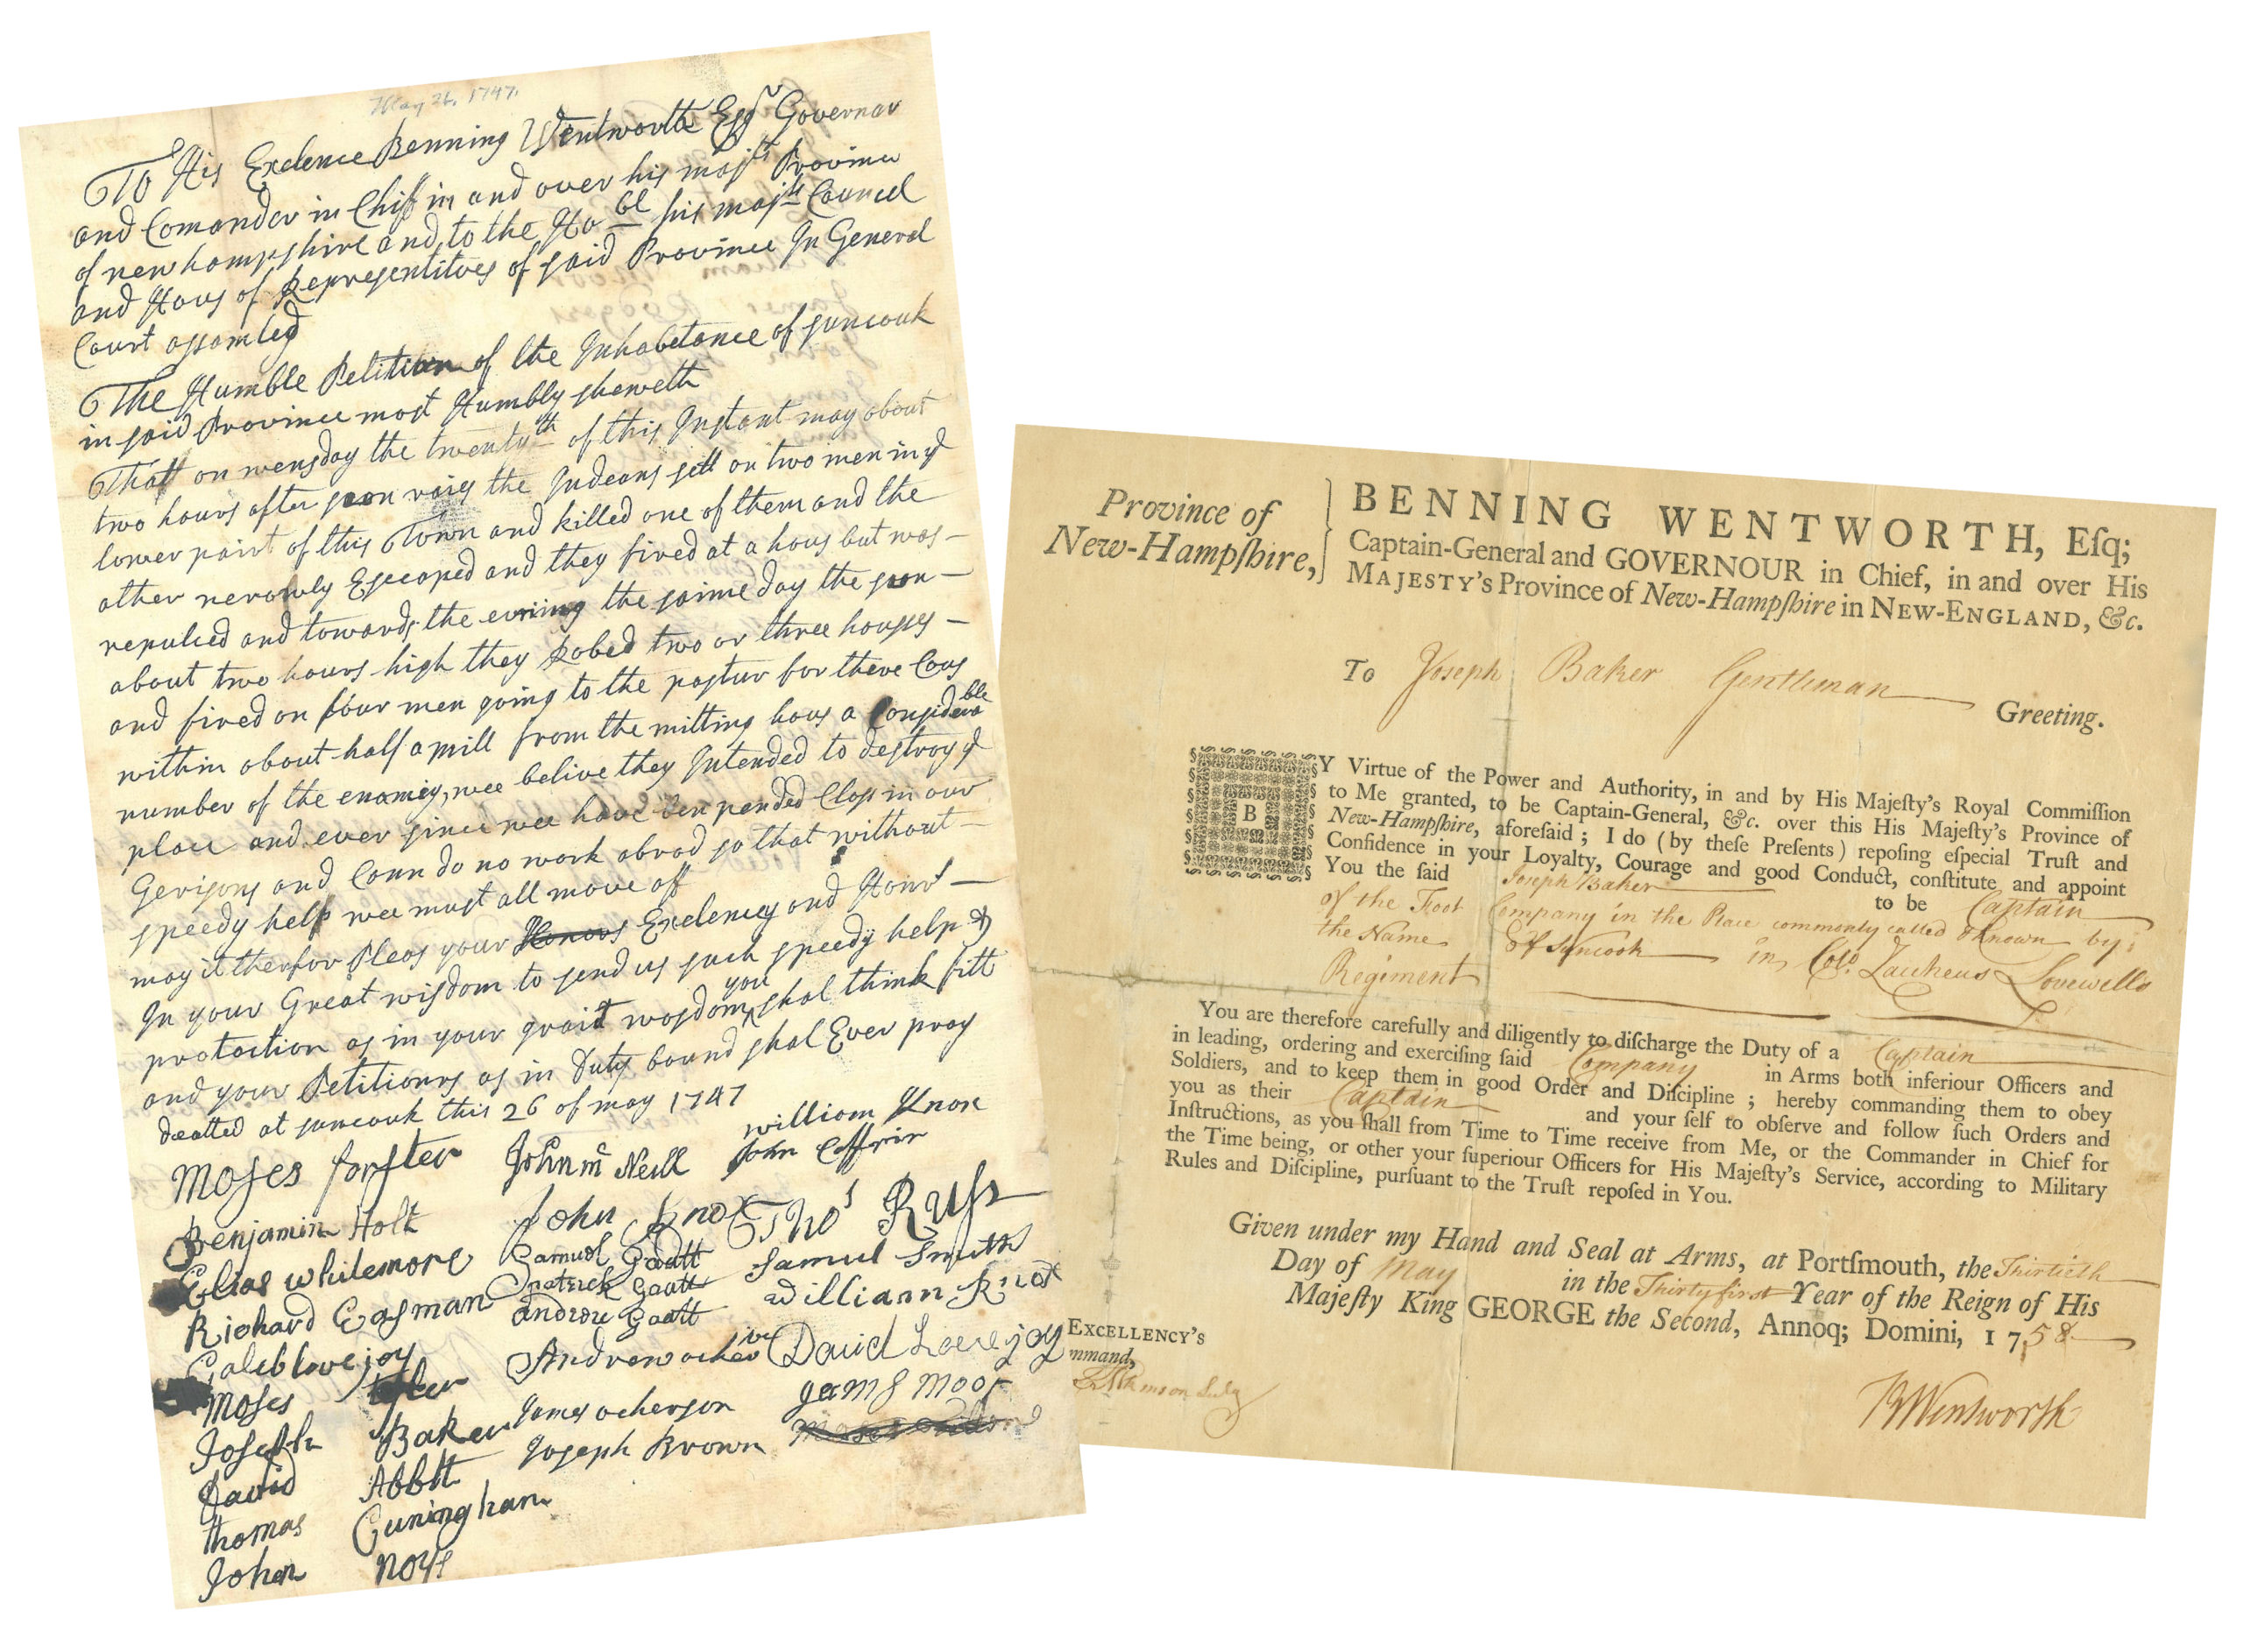 May 26, 1747.
To His Exelence Benning Wentworth Esqr Governor
and Comander in Chiff in and over his majts Province
of new hampshire and to the Hobl his majts Councel
and Hous of Representitves of said Province In General
Court assambled
The Humble Petition of the Inhabetance of suncook
in said Province most Humbly sheweth
That on wensday the twentyth of this Instant may about
two hours after son rais the Indeans sett on two men in ye
lower pairt of this Town and killed one of them and the
other nerowly Esccaped and they fired at a hous but was
repulced and towards the evning the saime day the son
about two hours high they Robed two or three housses
and fired on four men going to the pastur for there Cous
within about half a mill from the mitting hous a Considerable
number of the enamiey, wee belive they Intended to destroy ye
place and ever since wee have ben pended Closs in our
Gerisons and Cann do no work abrod so that without
speedy help wee must all move off
may it therfor Pleas your Honors Exelencey and Honrs
In your Great wisdom to send us such speedy help &
protaction as in your grait wosdom you shal think fitt
and your Petitionrs as in Duty bound shal Ever pray
deatted at suncook this 26 of may 1747
Moses forster John mc Neill william Knox
John Coffrin
Benjamin Holt John Knox Thos Russ
Elias whitemore Samuel Gaatt Samuel Smith
Richard Easman patrick Gaatt William Knox
Caleb lovejoy andrew Gaatt David Lovejoy
Moses tyler Andrew ocher jur jams moor
Joseph Baker James ocherson
David Abbtt Joseph Brown
thomas Cuningham
John Noys
Province of
New-Hampſhire,
BENNING WENTWORTH, Eſq;
Captain-General and GOVERNOUR in Chief, in and over His
MAJESTY's Province of New-Hampſhire in NEW-ENGLAND, &c.
To Joseph Baker Gentleman
Greeting.
BY Virtue of the Power and Authority, in and by His Majeſty's Royal Commiſſion
to Me granted, to be Captain-General, &c. over this His Majeſty's Province of
New-Hampſhire, aforeſaid ; I do (by theſe Preſents) repoſing eſpecial Truſt and
Confidence in your Loyalty, Courage and good Conduct, conſtitute and appoint
You the ſaid Joseph Baker to be Captain
of the Foot Company in the Place commonly called & known by
the Name of Suncook in Colo. Zacheus Lovewells
Regiment
You are therefore carefully and diligently to diſcharge the Duty of a Captain
in leading, ordering and exerciſing ſaid Company in Arms both inferiour Officers and
Soldiers, and to keep them in good Order and Diſcipline ; hereby commanding them to obey
you as their Captain and your ſelf to obſerve and follow ſuch Orders and
Inſtructions, as you ſhall from Time to Time receive from Me, or the Commander in Chief for
the Time being, or other your ſuperiour Officers for His Majeſty's Service, according to Military
Rules and Diſcipline, purſuant to the Truſt repoſed in You.
Given under my Hand and Seal at Arms, at Portſmouth, the Thirtieth
Day of May in the Thirty first Year of the Reign of His
Majeſty King GEORGE the Second, Annoq; Domini, 1758
EXCELLENCY's
mmand,
BWentworth